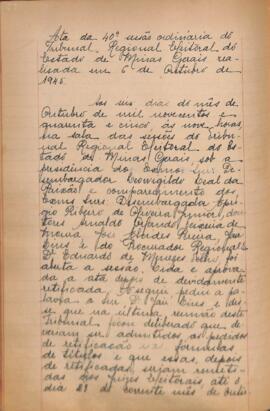 Ata da 40ª sessão ordinária do
Tribunal Regional Eleitoral do
Estado de Minas Gerais rea-
lisada em 6 de Outubro de
1945.
Aos seis dias do mês de
Outubro de mil novecentos e
quarenta e cinco, às nove horas,
na sala das sessões do Tribu-
nal Regional Eleitoral do Es-
tado de Minas Gerais, sob a
presidência do Exmo. Snr. De-
sembargador Leal da
Paixão e comparecimento dos
Exmos. Snrs. Desembargador
Ribeiro de Oliveira, dou-
tores Arnaldo de
Moura, José Pereira, Jair
Lins e do Procurador Regional
Dr. Eduardo de Menezes Filho, foi
aberta a sessão. Lida e aprova-
da a ata depois de devidamente
retificada. A seguir pediu a pa-
lavra o Snr. Dr. Jair Lins e dis-
se que na última reunião deste
Tribunal ficou deliberado que de-
veriam ser admitidos os pedidos
de retificação nas fórmulas
de títulos e que essas, depois
de retificadas, sejam remeti-
das aos Juizes Eleitorais, até o
dia 21 do corrente mês de Outu-